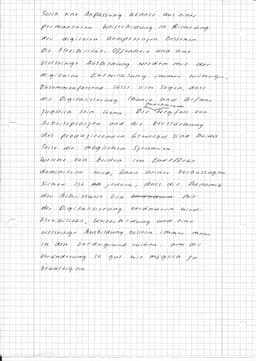 Such eine Anpassung könnte aus einer
permanenten Weiterbildung in Richtung
der digitalen Kompetenzen bestehen.
Die Flexibilität, Offenheit und eine
vielseitige Ausbildung werden mit der
digitalen Entwicklung immer wichtiger.
Zusammenfassend lässt sich sagen, dass
die Digitalisierung Chance und Gefahr
zugleich sein kann. Der Wegfall von
Arbeitsplätzen und die Verstärkung
des produzierenden Gewerbes sind beides
Teile des möglichen Szenarios.
Welche von beiden im Endeffekt
dominieren wird, kann keiner voraussagen.
Sicher ist jedoch, dass die Dynamik
der Arbeitswelt sich mit
der Digitalisierung verändern wird.
Flexibilität, Weiterbildung und eine
vielseitige Ausbildung sollten immer mehr
in den Vordergrund rücken, um die
Veränderung so gut wie möglich zu
bewältigen.